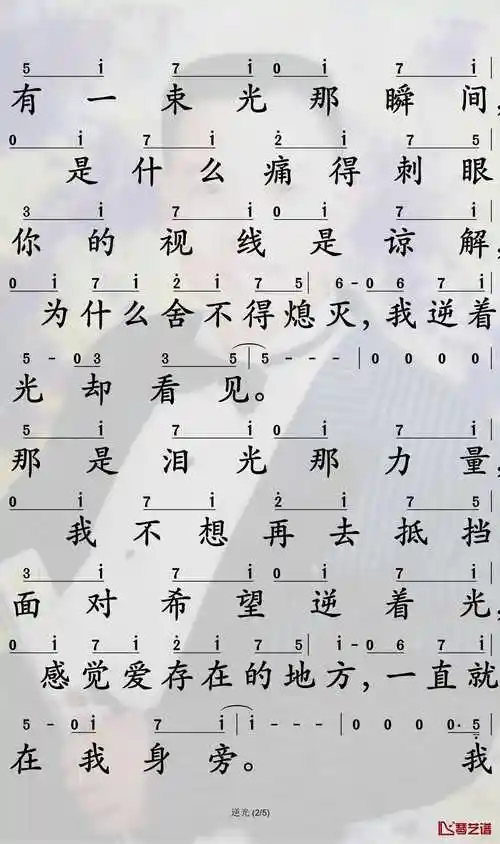 5 i 7 i 0 i 7 i|
有一束光那瞬间,
0 i 7 i 2 i 7 5
是什么痛得刺眼
3 i 7 i 0 i 7 i|
你的视线是谅解,
0 i 7 i 2 i 7 5| 6-0 6 7 i|
为什么舍不得熄灭,我逆着
5 - 0 3 3 5|5 - - -|0 0 0 0|
光却看见。
5 i 7 i 0 i 7 i|
那是泪光那力量,
0 i 7 i 2 i 7 i
我不想再去抵挡
3 i 7 i 0 i 7 i|
面对希望逆着光,
0 i 7 i 2 i 7 5| i-0 6 7 i|
感觉爱存在的地方,一直就
5 - 0 i 7 i|i - - -|0 0 0 0|0 0 0 0·5
在我身旁。 我
逆光 (2/5)
琴艺谱